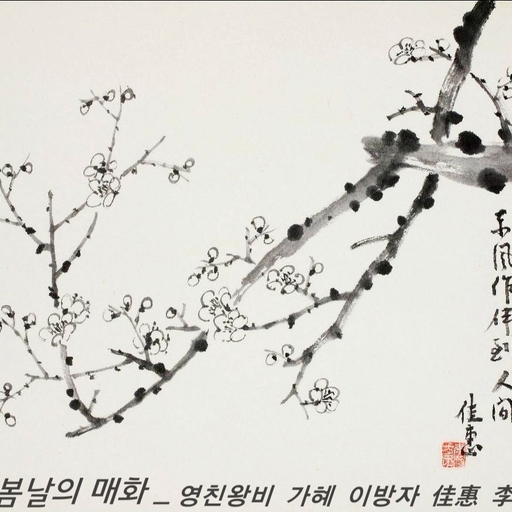 東風作伴到人間
佳惠
봄날의 매화 _ 영친왕비 가혜 이방자 佳惠 李